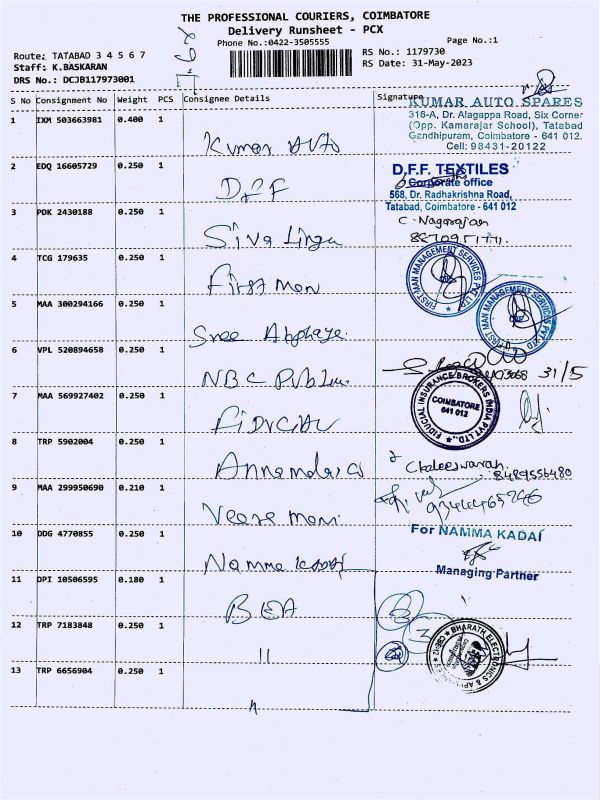 THE PROFESSIONAL COURIERS, COIMBATORE
Delivery Runsheet - PCX
Phone No.:0422-3505555
Page No.:1
Route: TATABAD 3 4 5 6 7
RS No.: 1179730
Staff: K.BASKARAN
RS Date: 31-May-2023
DRS No.: DCJB117973001
S No Consignment No Weight PCS Consignee Details Signature
1 IXM 503663981 0.400 1
Kumar Auto
KUMAR AUTO SPARES
316-A, Dr. Alagappa Road, Six Corner
(Opp. Kamarajar School), Tatabad
Gandhipuram, Coimbatore - 641 012.
Cell: 98431-20122
2 EDQ 16605729 0.250 1
DFF
D.F.F. TEXTILES
Corporate office
568, Dr. Radhakrishna Road,
Tatabad, Coimbatore - 641 012
3 PDK 2430188 0.250 1
Siva Linga
C. Nagarajan
4 TCG 179635 0.250 1
First Man
FIRST MAN MANAGEMENT SERVICES PVT LTD
CBE
5 MAA 300294166 0.250 1
Sree
FIRST MAN MANAGEMENT SERVICES PVT LTD
CBE
6 VPL 520894658 0.250 1
NBC
31/5
7 MAA 569927402 0.250 1
FIDUCIAL
FIDUCIAL INSURANCE BROKERS INDIA PVT LTD.,
COIMBATORE
641 012
8 TRP 5902004 0.250 1
Chaleeswarah
8489556480
9 MAA 299950690 0.210 1
Veera Mani
10 DDG 4770855 0.250 1
Namma Kadai
For NAMMA KADAI
Managing Partner
11 DPI 10506595 0.180 1
BEA
12 TRP 7183848 0.250 1
11
BHARATH ELECTRONICS & APPLIANCES
CBE-12
13 TRP 6656904 0.250 1